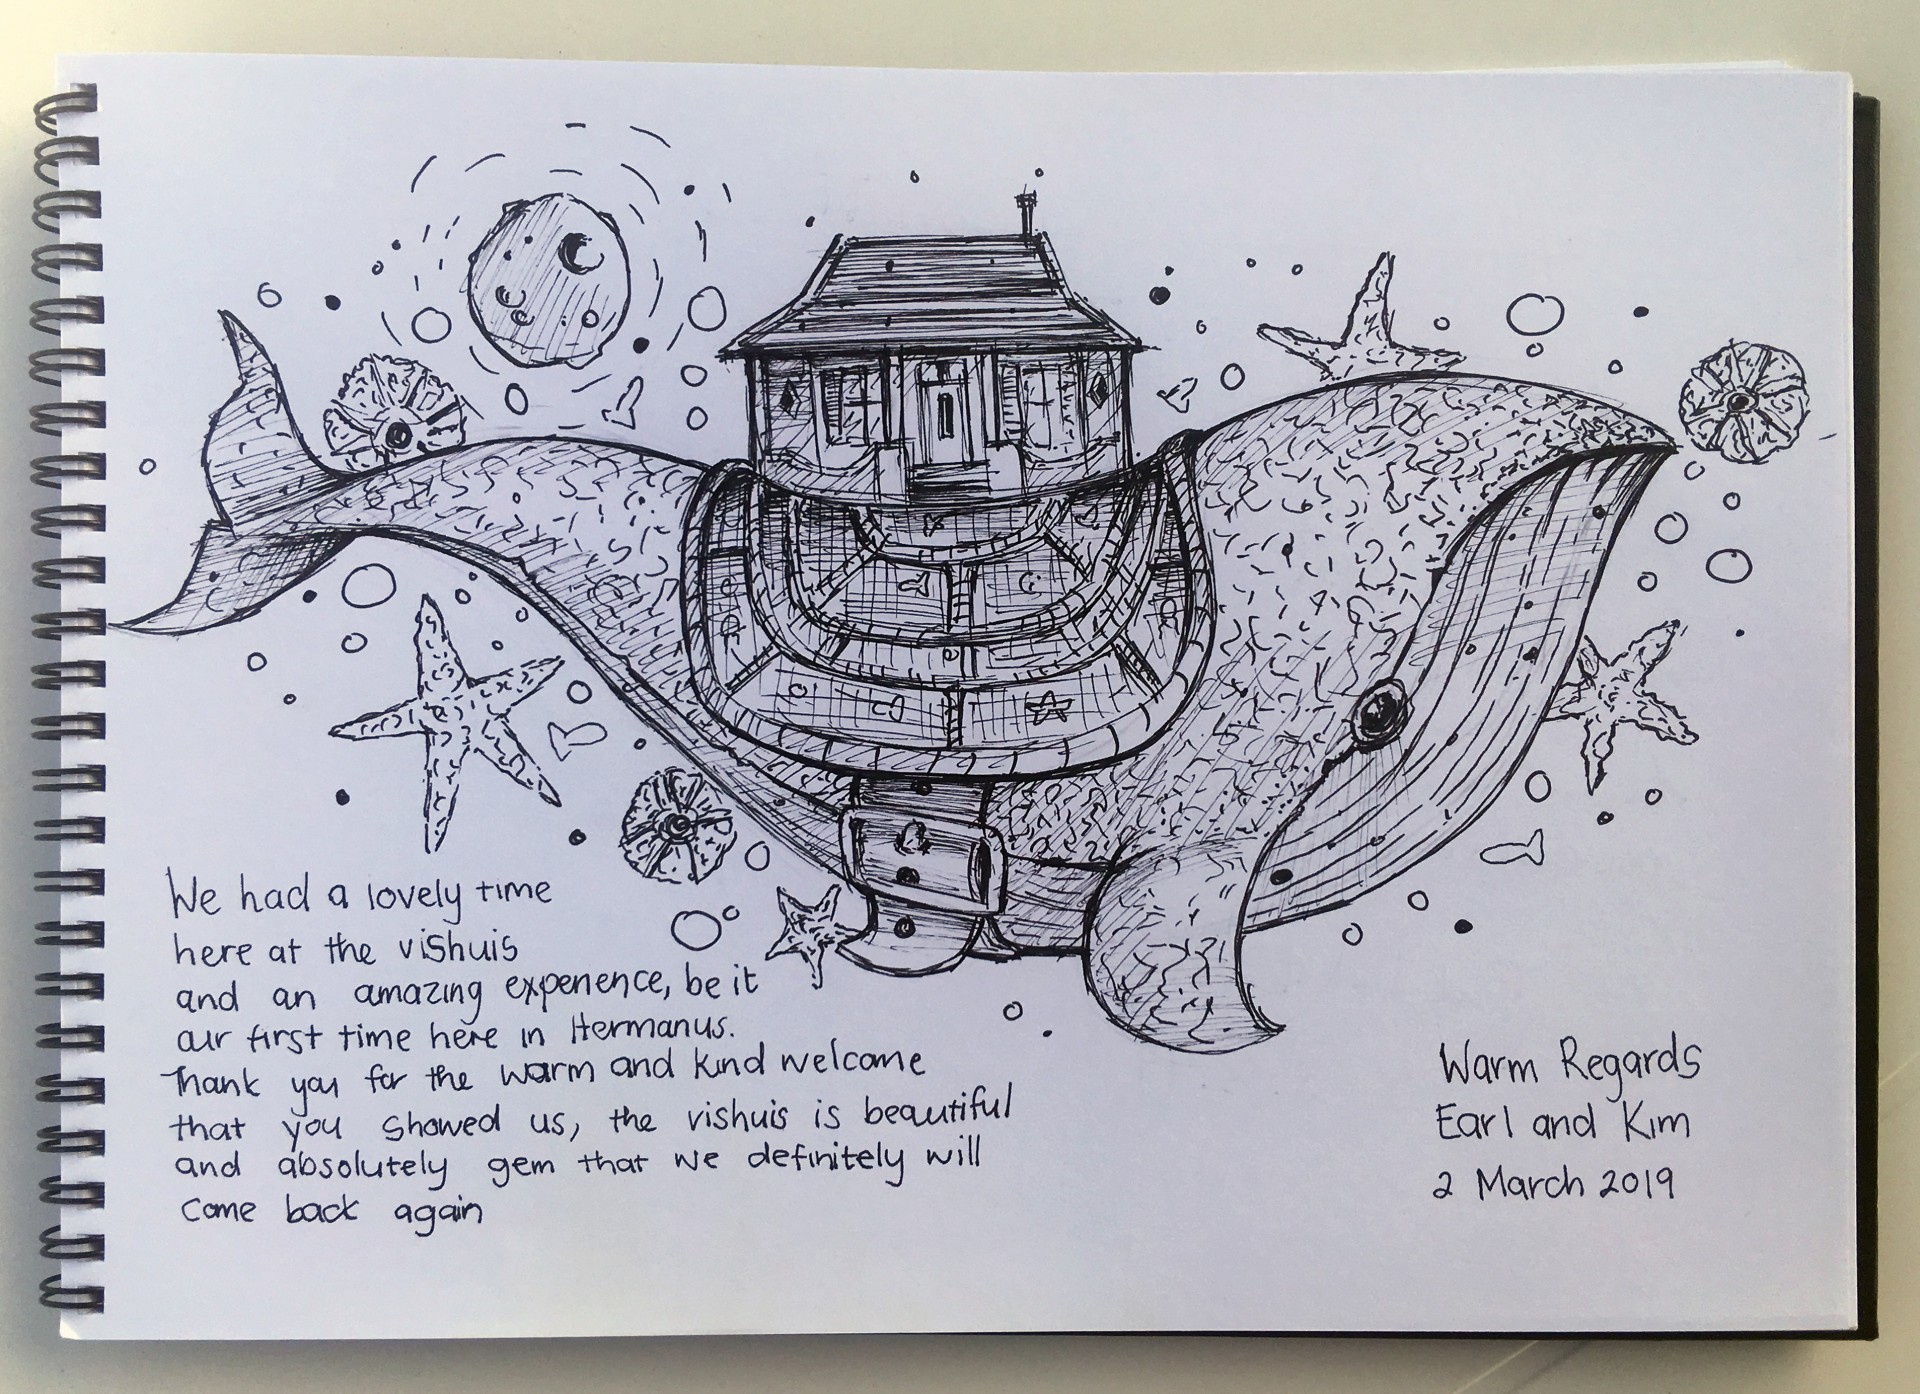 We had a lovely time
here at the vishuis
and an amazing experience, be it
our first time here in Hermanus.
Thank you for the warm and kind welcome
that you showed us, the vishuis is beautiful
and absolutely gem that we definitely will
come back again
Warm Regards
Earl and Kim
2 March 2019